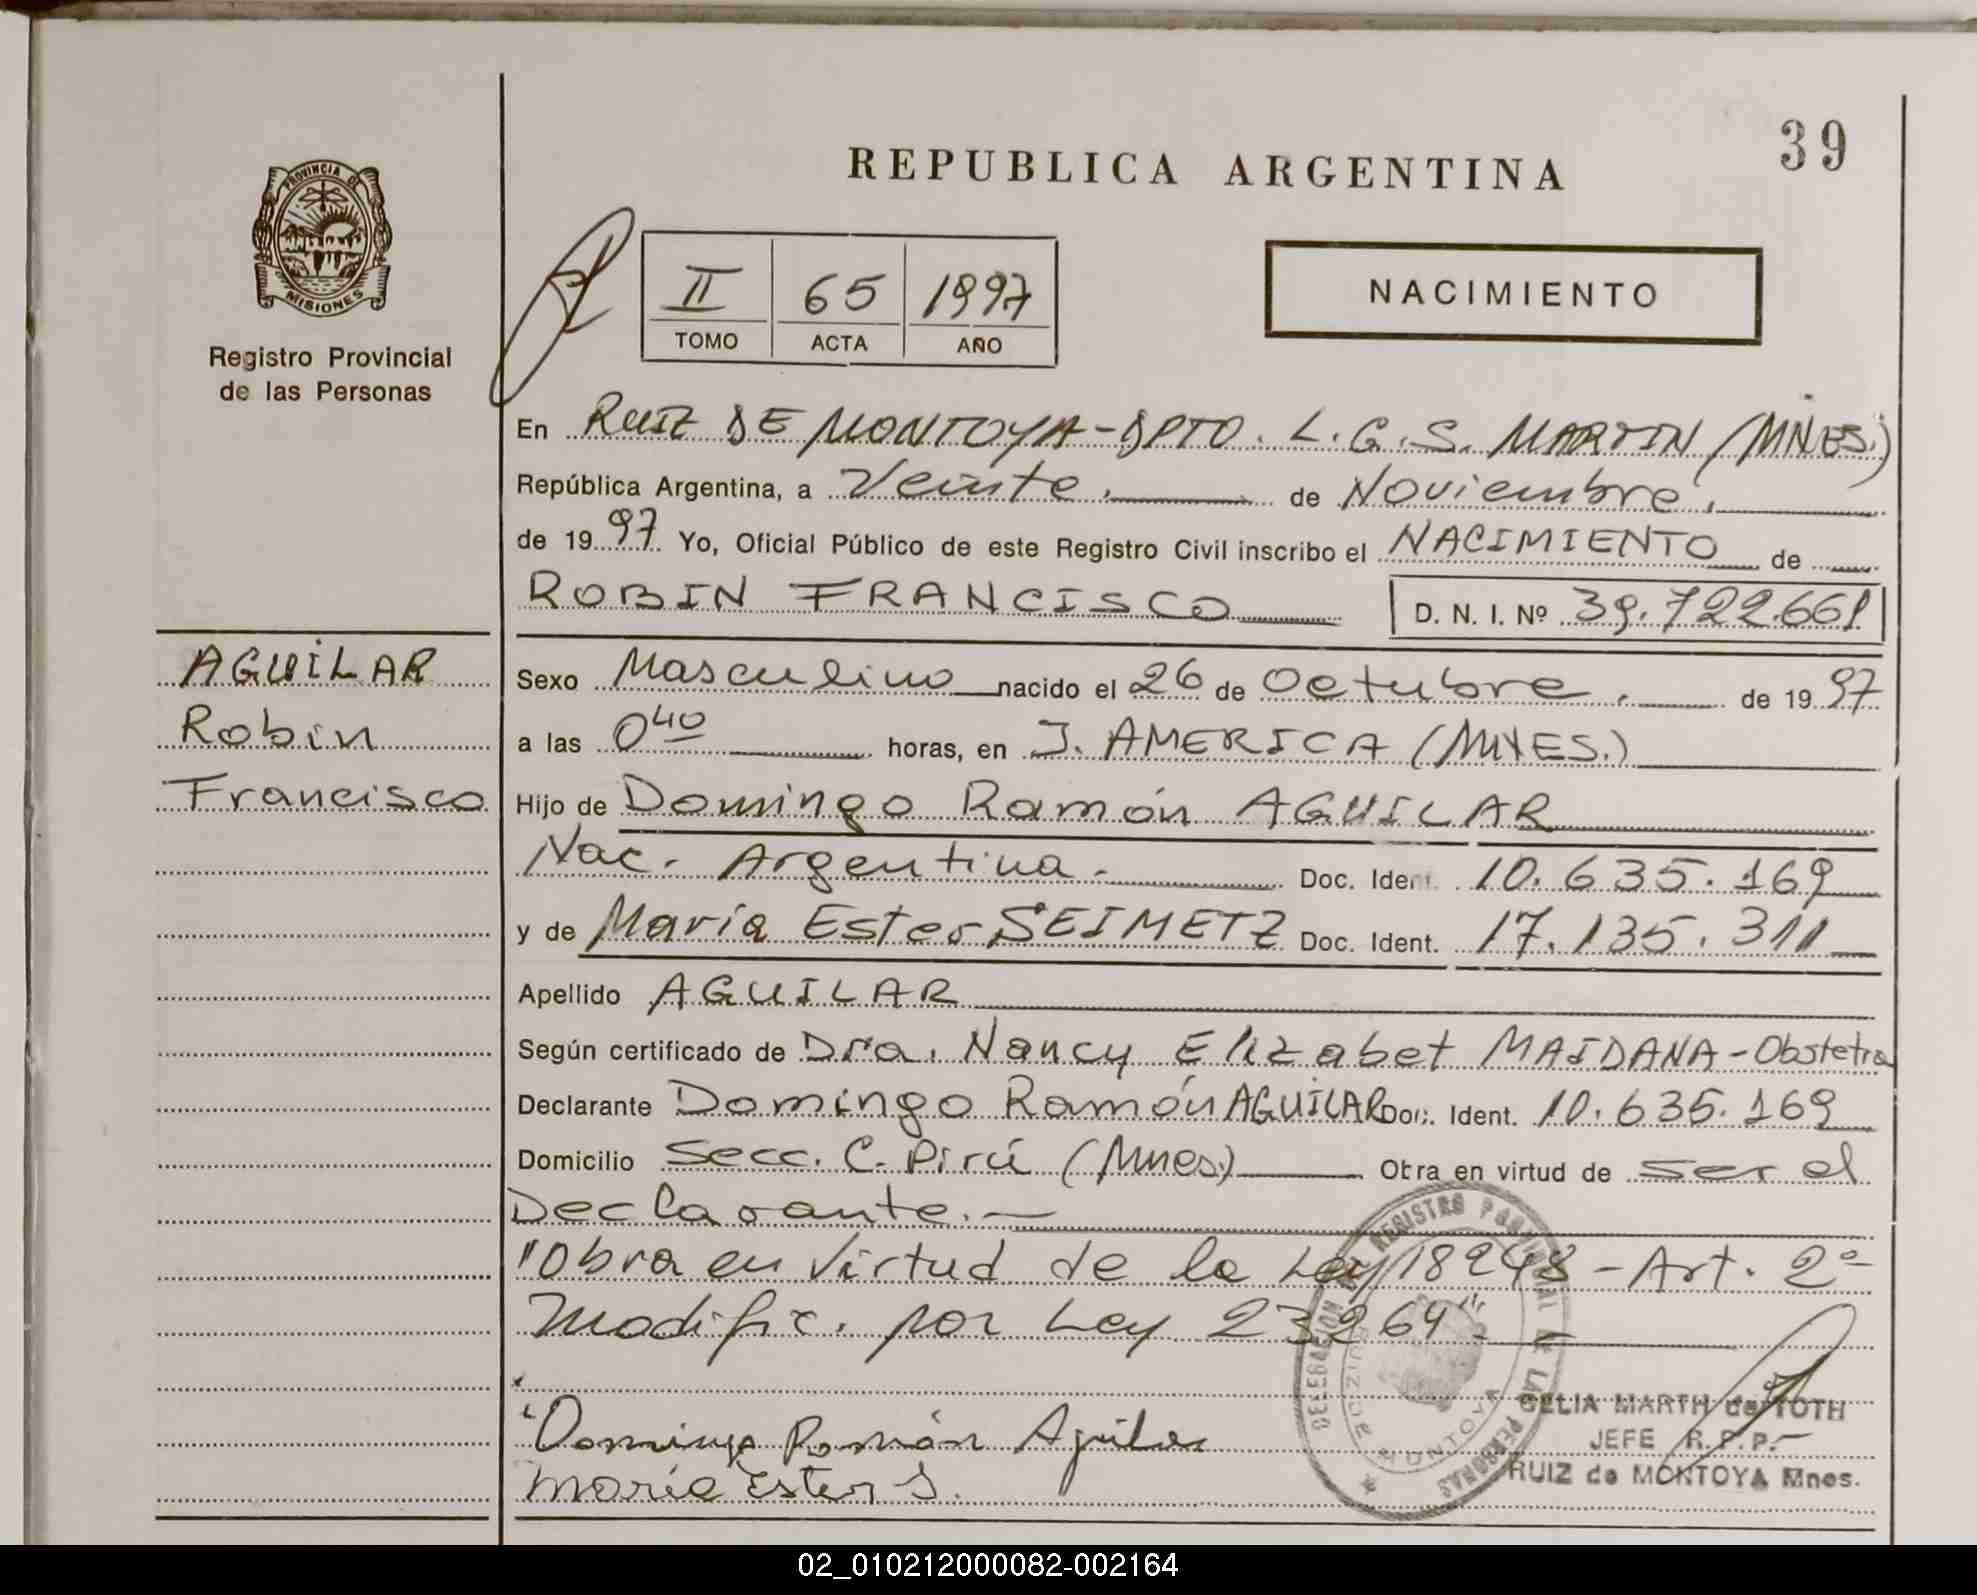 39
REPUBLICA ARGENTINA
PROVINCIA DE
MISIONES
Registro Provincial
de las Personas
II 65 1997
TOMO ACTA AÑO
NACIMIENTO
En RUIZ DE MONTOYA - DPTO. L.G.S. MARTIN (MNES.)
República Argentina, a Veinte. de Noviembre.
de 1997 Yo, Oficial Público de este Registro Civil inscribo el NACIMIENTO de
ROBIN FRANCISCO D. N. I. Nº 39.722.661
AGUILAR
Robin
Francisco
Sexo Masculino nacido el 26 de Octubre. de 1997
a las 0 40 horas, en J. AMERICA (MNES.)
Hijo de Domingo Ramón AGUILAR
Nac. Argentina. Doc. Ident. 10.635.169
y de María Ester SEIMETZ Doc. Ident. 17.135.311
Apellido AGUILAR
Según certificado de Dra. Nancy Elizabet MAIDANA - Obstetra
Declarante Domingo Ramón AGUILAR Doc. Ident. 10.635.169
Domicilio Secc. C. Pirú (Mnes.) Obra en virtud de ser el
Declarante.-
"Obra en virtud de la Ley 18248 - Art. 2º
Modific. por Ley 23264". -
Domingo Ramón Aguilar
María Ester S.
DELEGACION DEL REGISTRO PROVINCIAL DE LAS PERSONAS
RUIZ DE MONTOYA
CELIA MARTH de TOTH
JEFE R.P.P.-
RUIZ de MONTOYA Mnes.
02_010212000082-002164